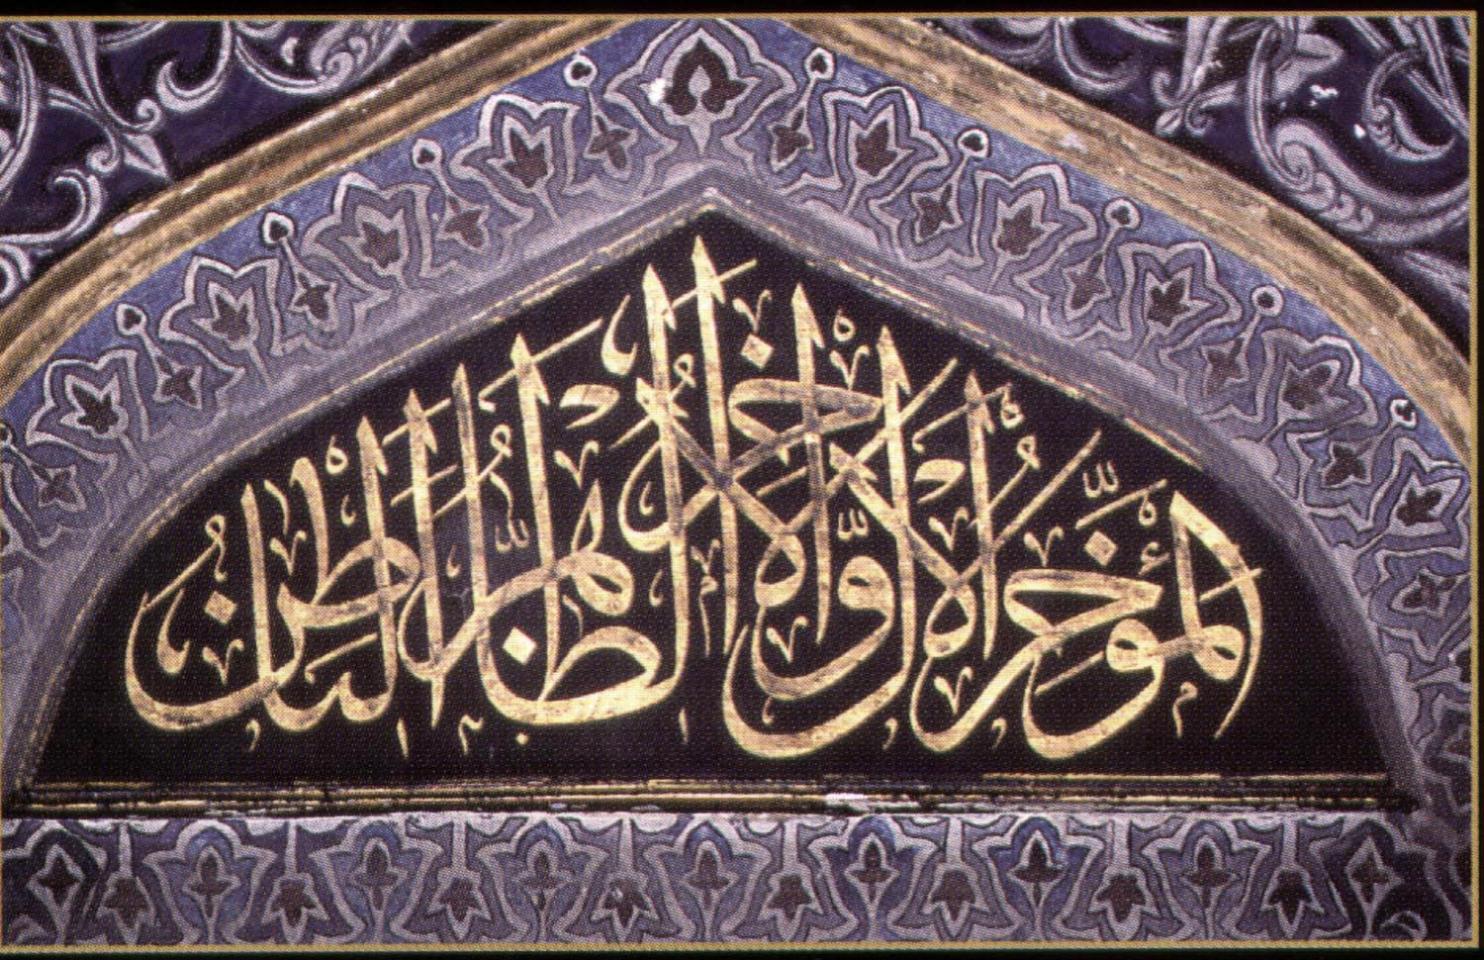 المؤخر الأول الآخر الظاهر الباطن